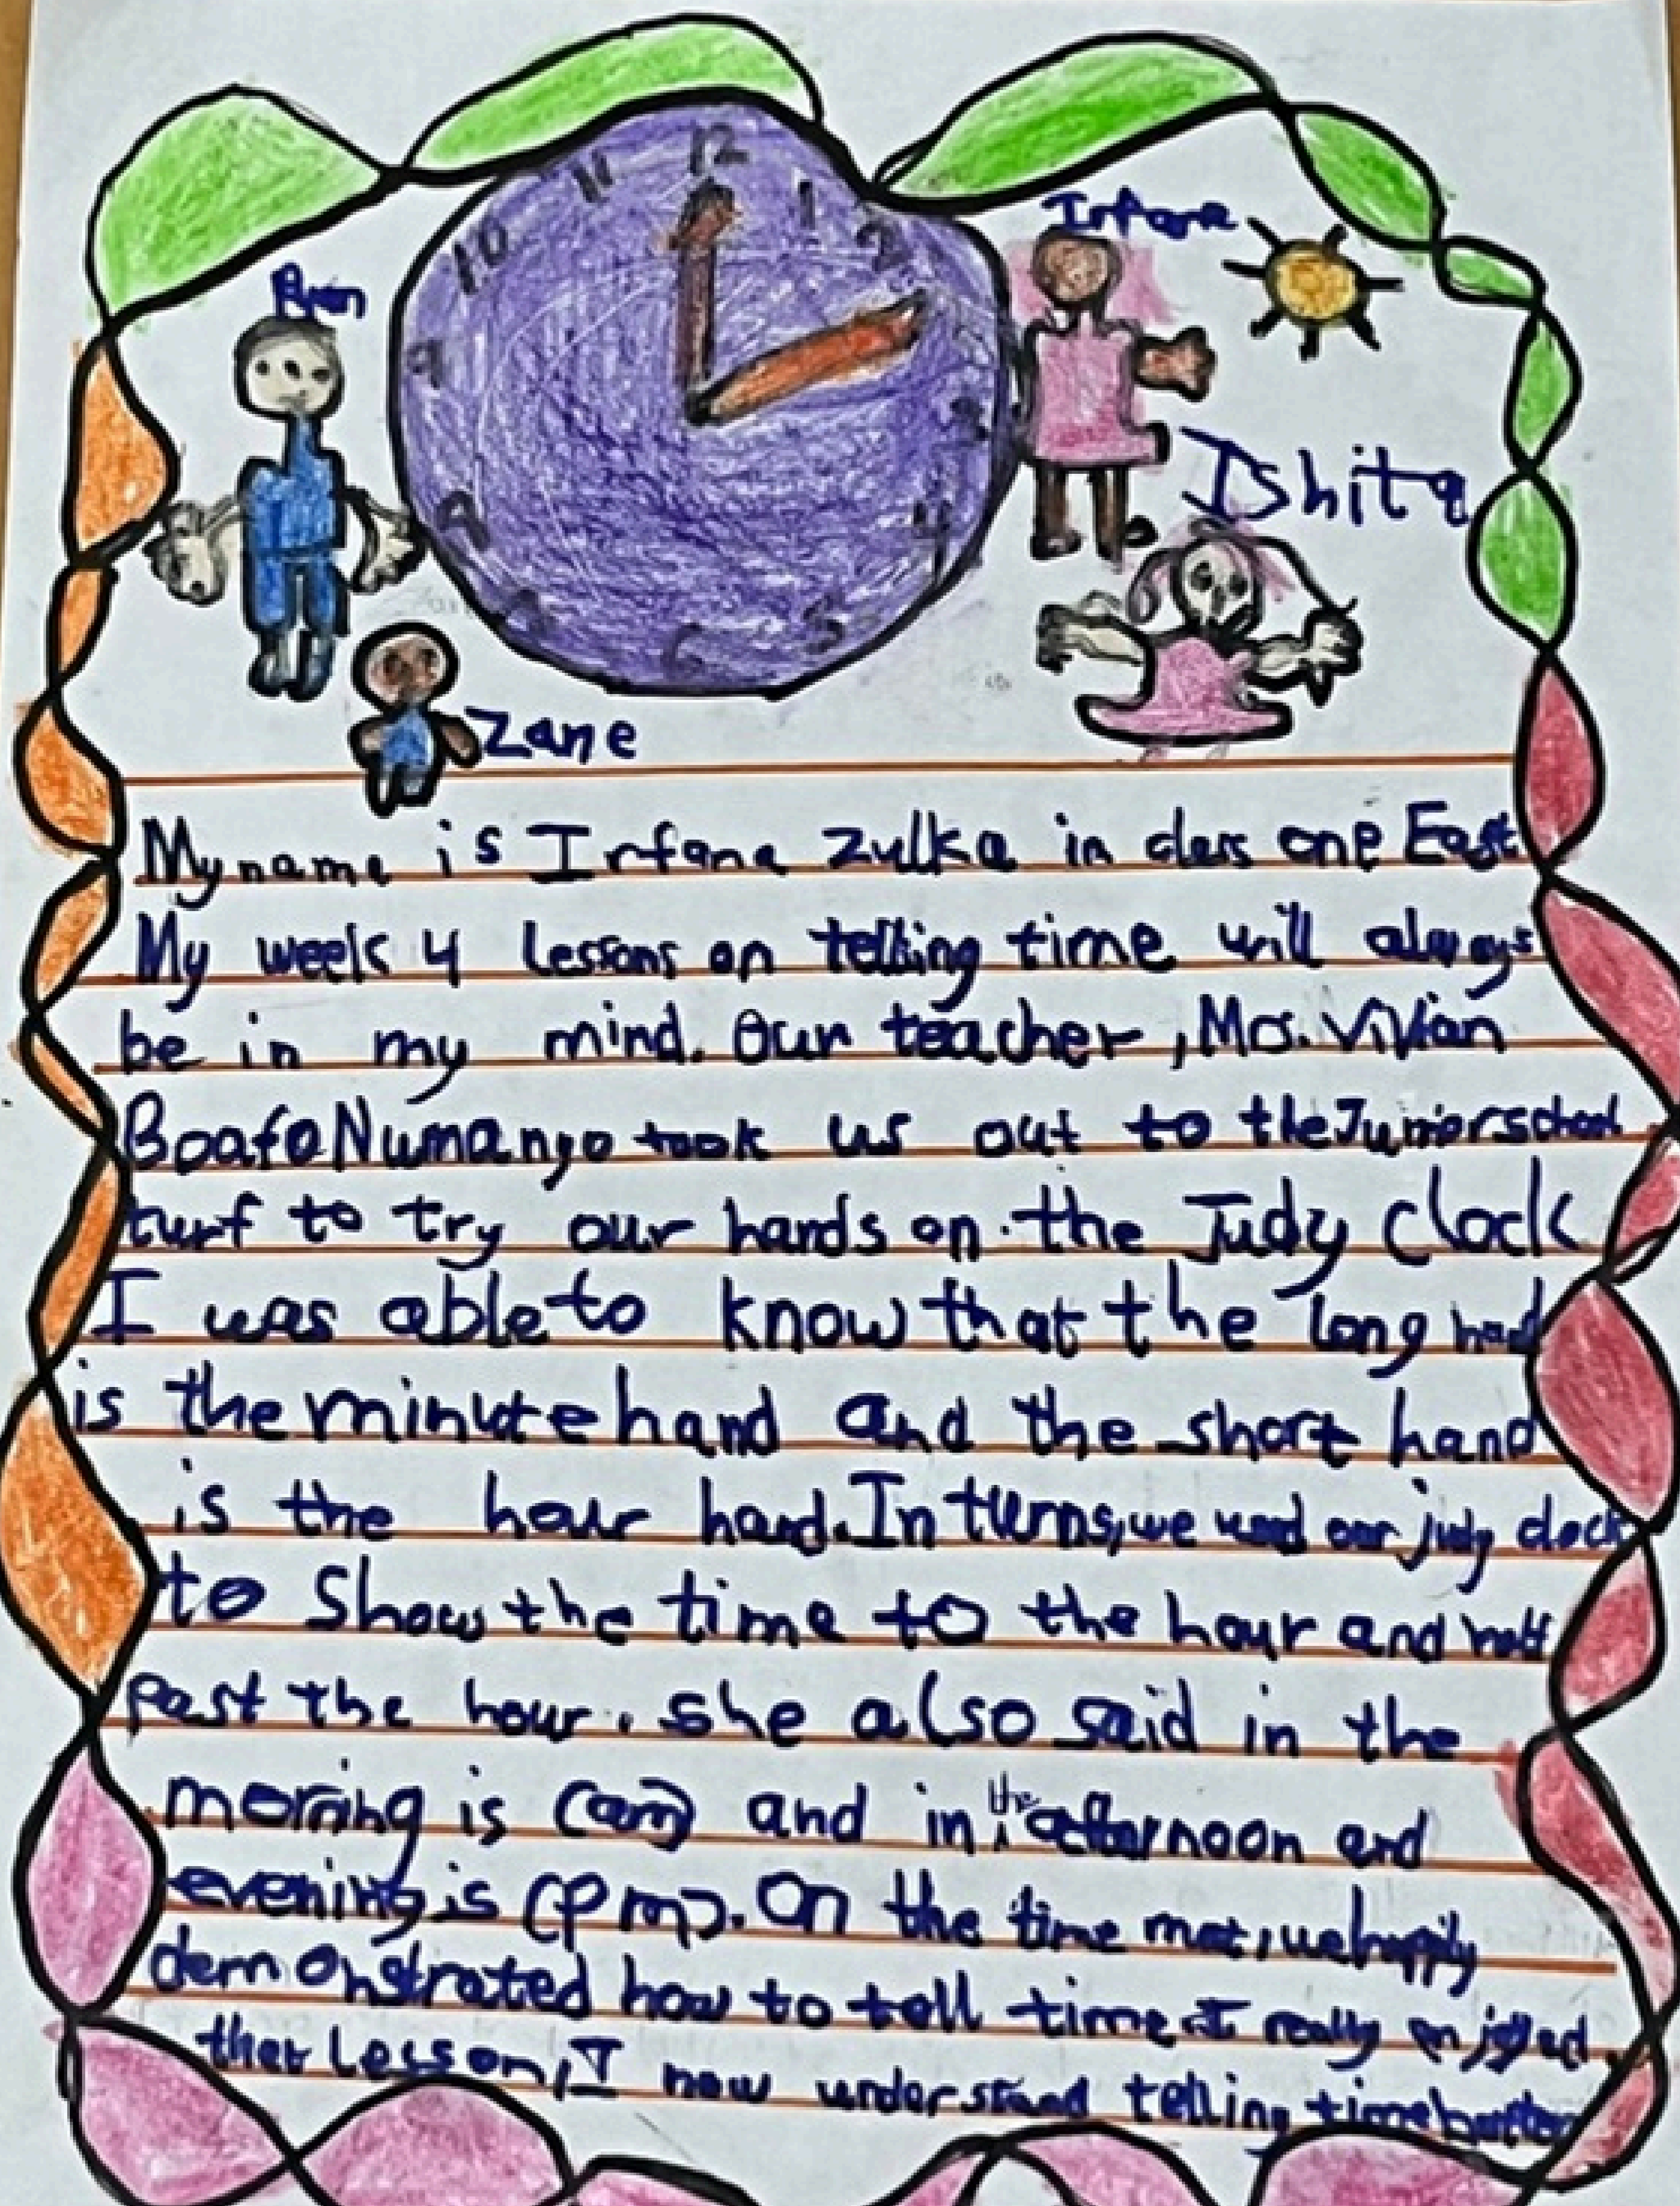 12
11
1
10
2
Irfana
Ben
9
3
Ishita
4
5
6
Zane
My name is Irfana Zulka in class one East
My week 4 lessons on telling time will always
be in my mind. Our teacher, Mrs. Vivian
Boafo Numanyo took us out to the Junior school
turf to try our hands on the Judy Clock
I was able to know that the long hand
is the minute hand and the short hand
is the hour hand. In turns, we used our judy clock
to Show the time to the hour and half
past the hour. She also said in the
morning is (am) and in the afternoon and
evening is (pm). On the time mat, we happily
demonstrated how to tell time. I really enjoyed
ther Lesson, I now understand telling time better